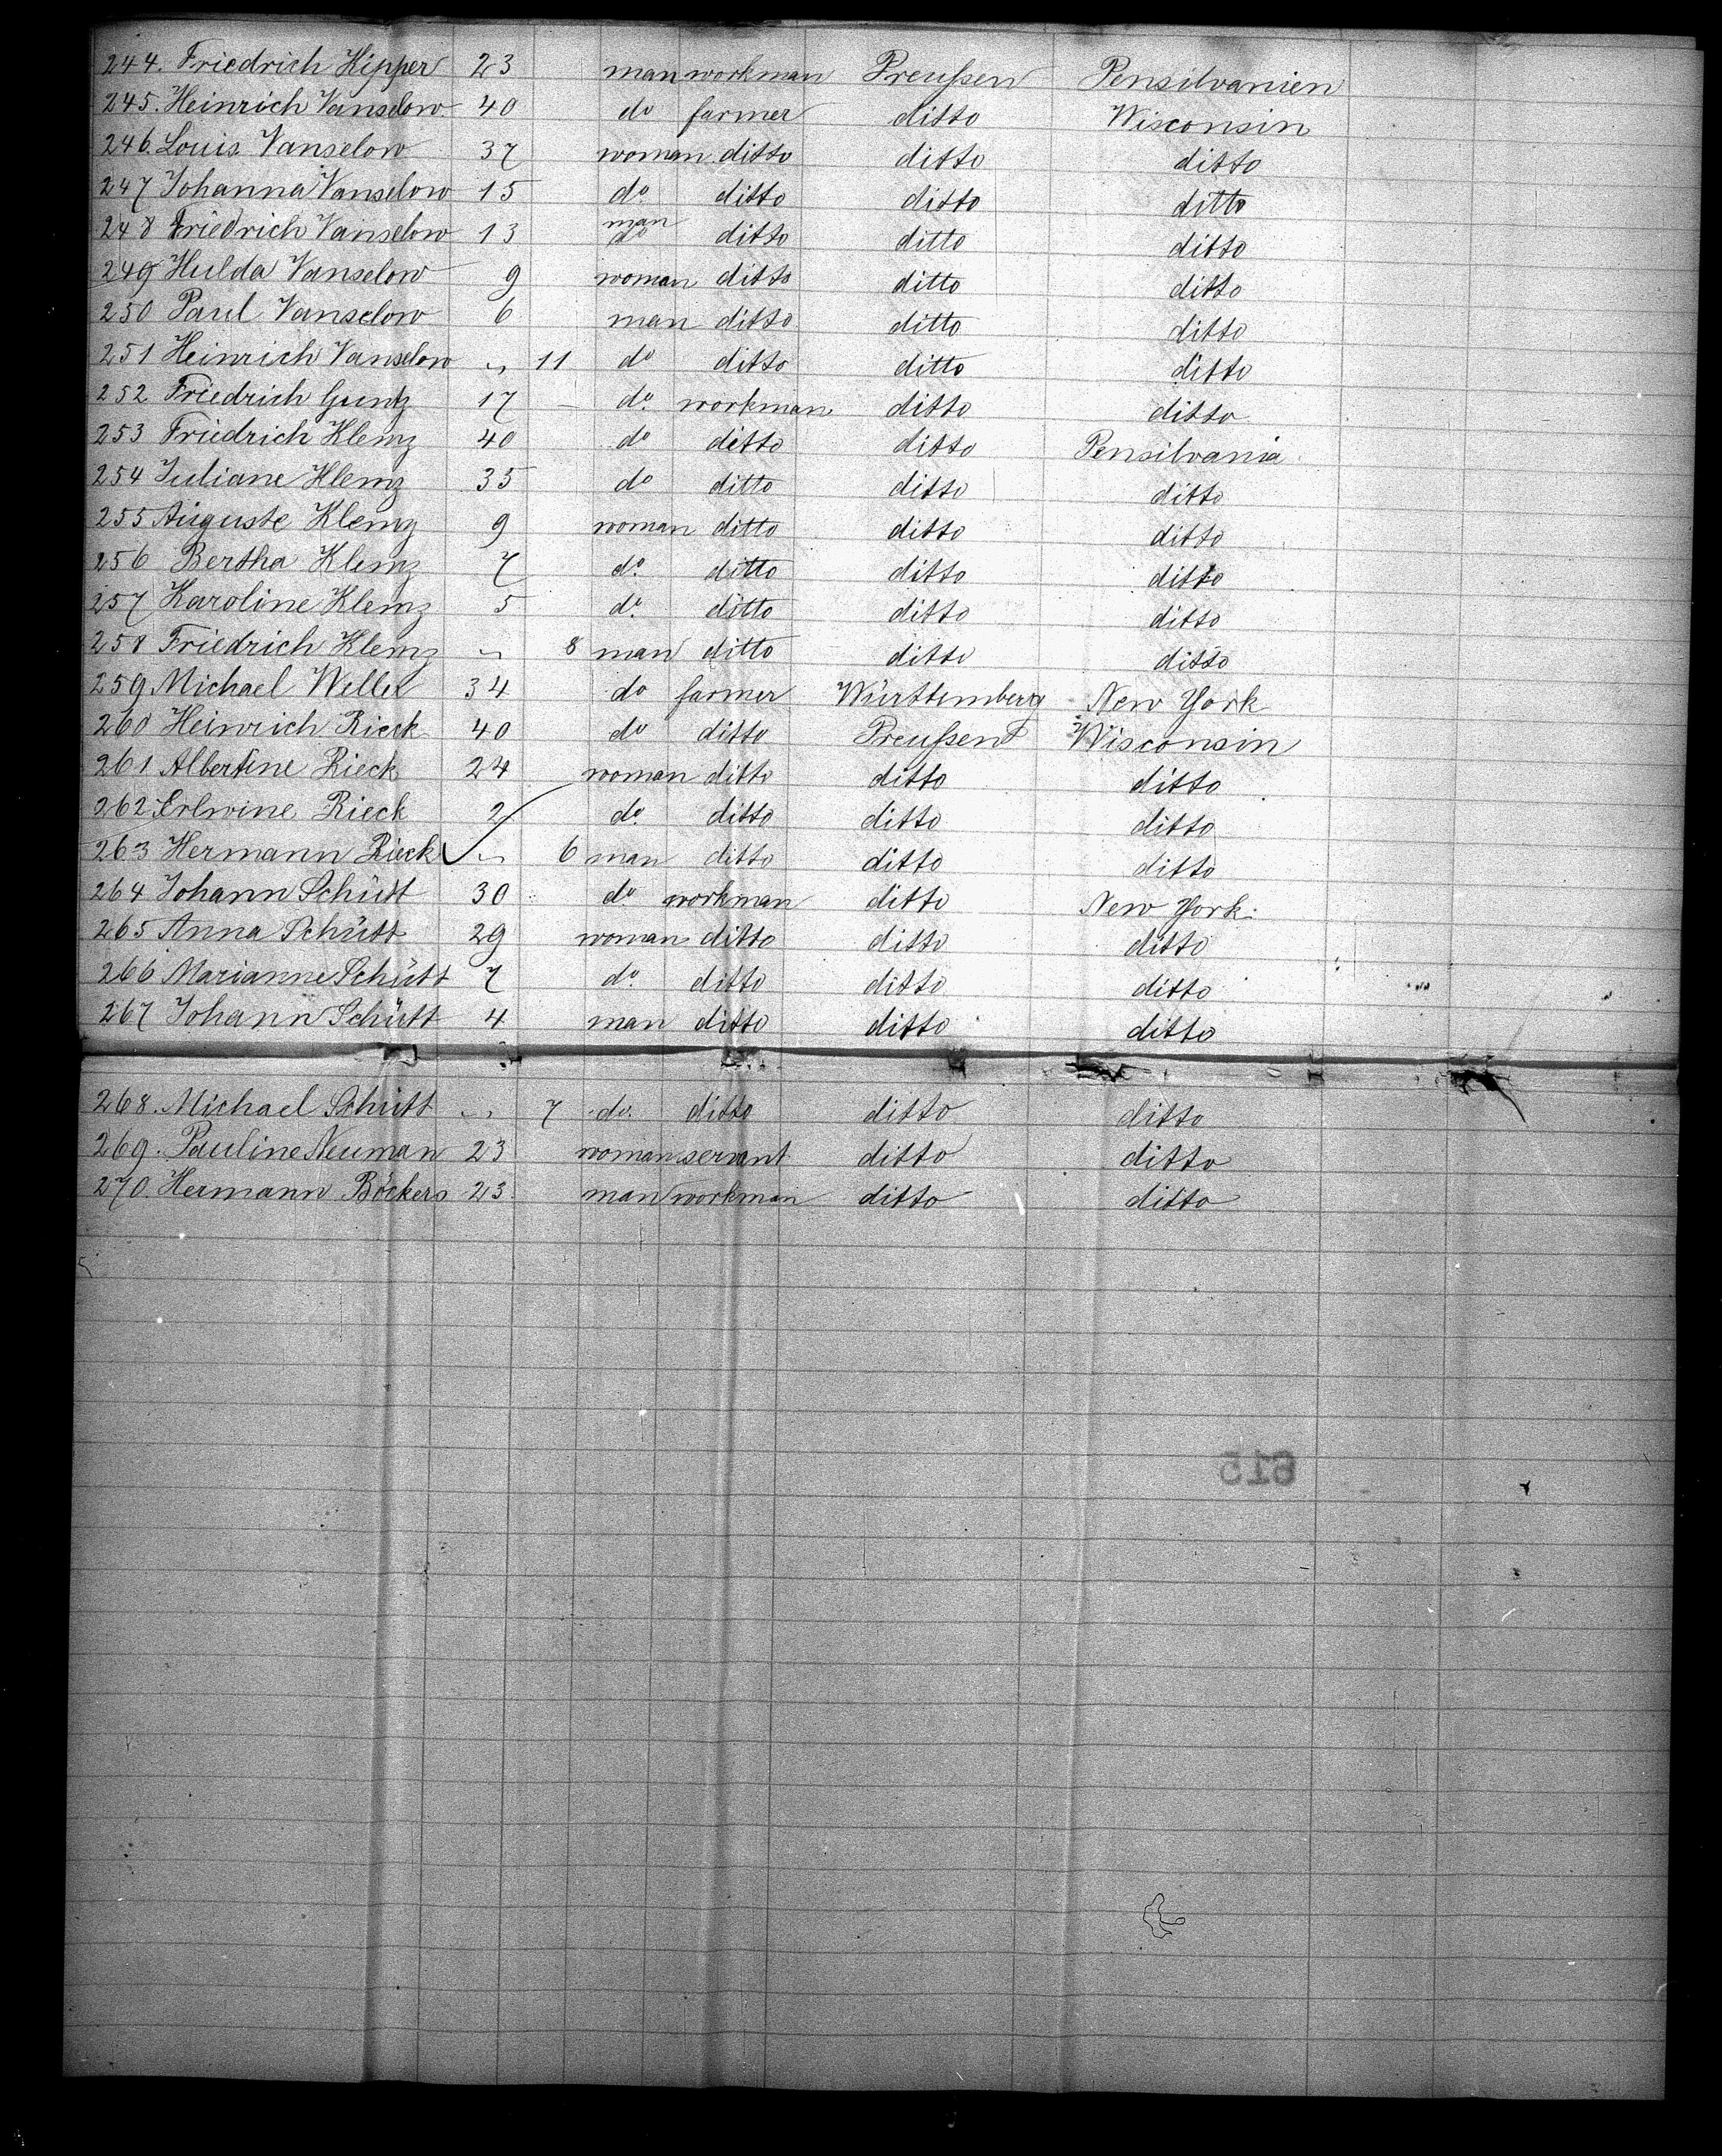 244. Friedrich Hipper 23 man workman Preußen Pensilvanien
245. Heinrich Vanselow 40 do farmer ditto Wisconsin
246. Louis Vanselow 37 woman ditto ditto ditto
247 Johanna Vanselow 15 do ditto ditto ditto
248 Friedrich Vanselow 13 man do ditto ditto ditto
249 Hulda Vanselow 9 woman ditto ditto ditto
250 Paul Vanselow 6 man ditto ditto ditto
251 Heinrich Vanselow " 11 do ditto ditto ditto
252 Friedrich Guntz 17 do. workman ditto ditto
253 Friedrich Klemz 40 do ditto ditto Pensilvania
254 Juliane Klemz 35 do ditto ditto ditto
255 Auguste Klemz 9 woman ditto ditto ditto
256 Bertha Klemz 7 do. ditto ditto ditto
257 Karoline Klemz 5 do. ditto ditto ditto
258 Friedrich Klemz " 8 man ditto ditto ditto
259 Michael Weller 34 do farmer Württemberg New York
260 Heinrich Rieck 40 do ditto Preußen Wisconsin
261 Albertine Rieck 24 woman ditto ditto ditto
262 Erlwine Rieck 2 do. ditto ditto ditto
263 Hermann Rieck " 6 man ditto ditto ditto
264 Johann Schütt 30 do workman ditto New York.
265 Anna Schütt 29 woman ditto ditto ditto
266 Marianne Schütt 7 do. ditto ditto ditto
267 Johann Schütt 4 man ditto ditto ditto
268. Michael Schütt " 7 do. ditto ditto ditto
269. Pauline Neuman 23 woman servant ditto ditto
270. Hermann Böckers 23 man workman ditto ditto
615